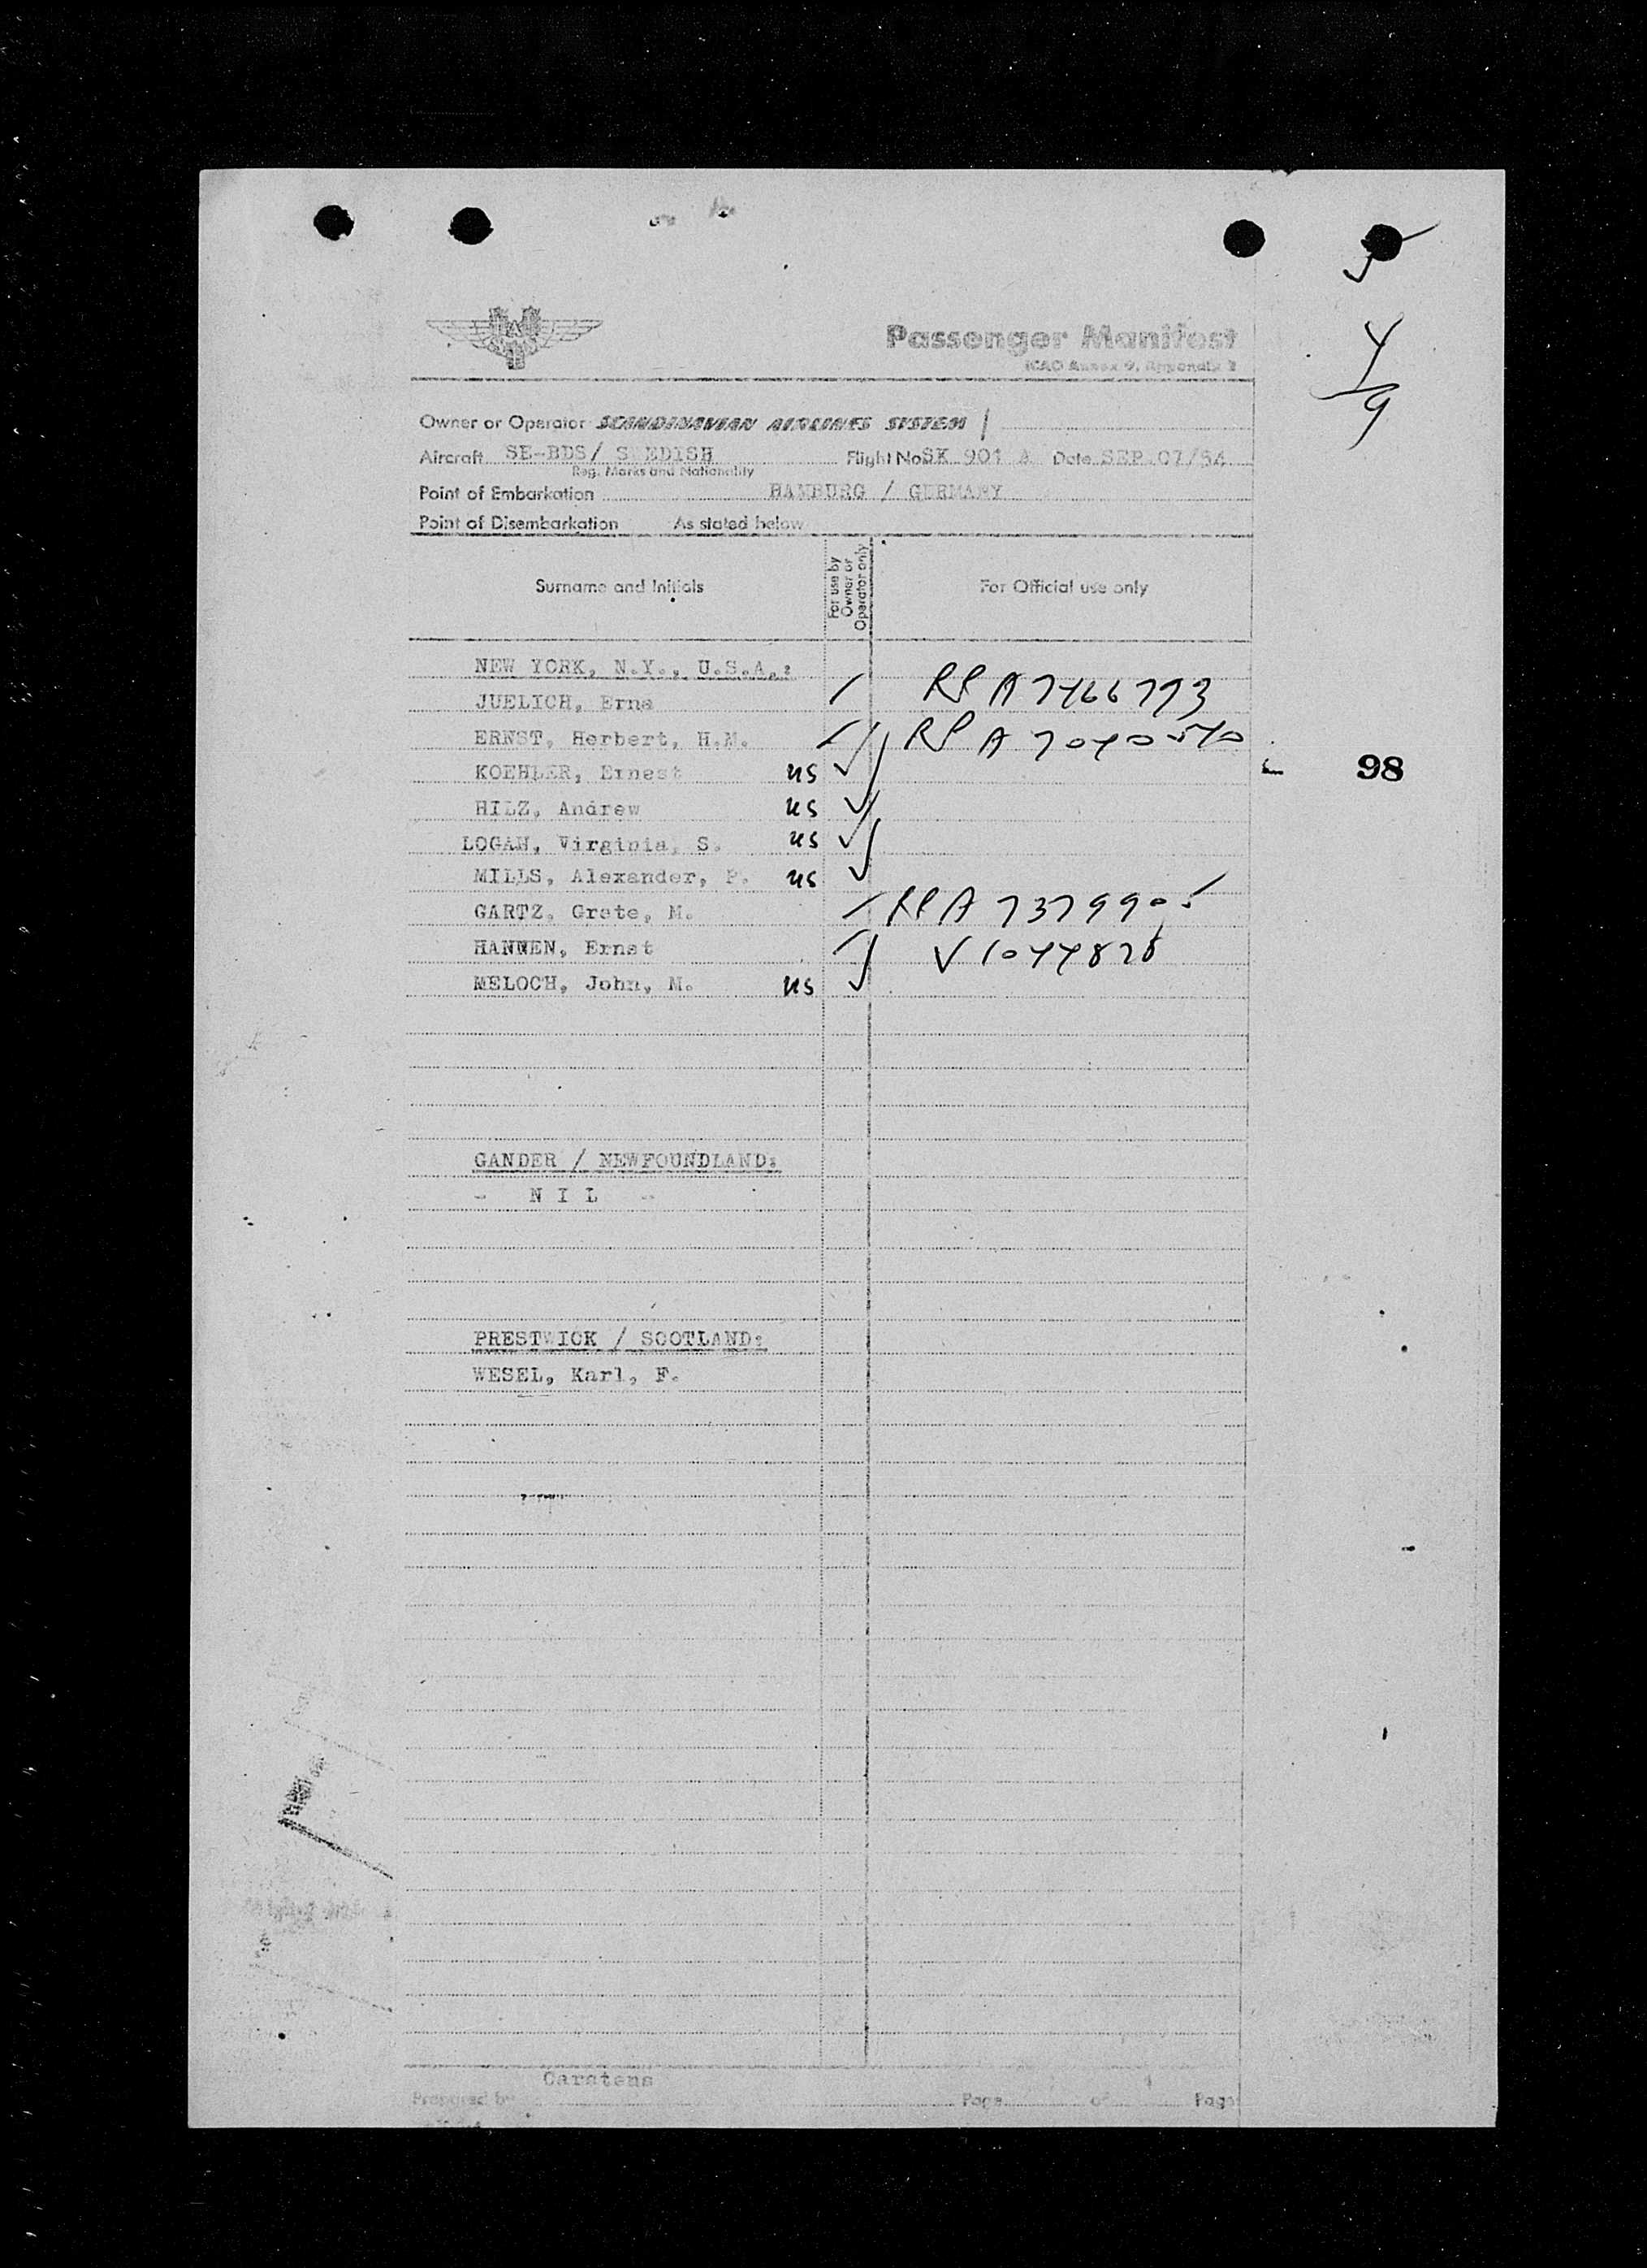 Passenger Manifest
ICAO Annex 9, Appendix 2
Owner or Operator SCANDINAVIAN AIRLINES SYSTEM
Aircraft SE-BDS/ SWEDISH Flight No SK 901 A Date SEP.07/54
Reg. Marks and Nationality
Point of Embarkation HAMBURG / GERMANY
Point of Disembarkation As stated below
Surname and Initials For use by Owner or Operator only For Official use only
NEW YORK, N.Y., U.S.A.:
JUELICH, Erna RP A7466793
ERNST, Herbert, H.M. RP A 7040540
KOEHLER, Ernest us
98
HILZ, Andrew us
LOGAN, Virginia, S. us
MILLS, Alexander, P. us
GARTZ, Grete, M. RP A 7379905
HANNEN, Ernst V 1044828
MELOCH, John, M. us
GANDER / NEWFOUNDLAND:
- N I L -
PRESTWICK / SCOTLAND:
WESEL, Karl, F.
Carstens
Prepared by Page of Page